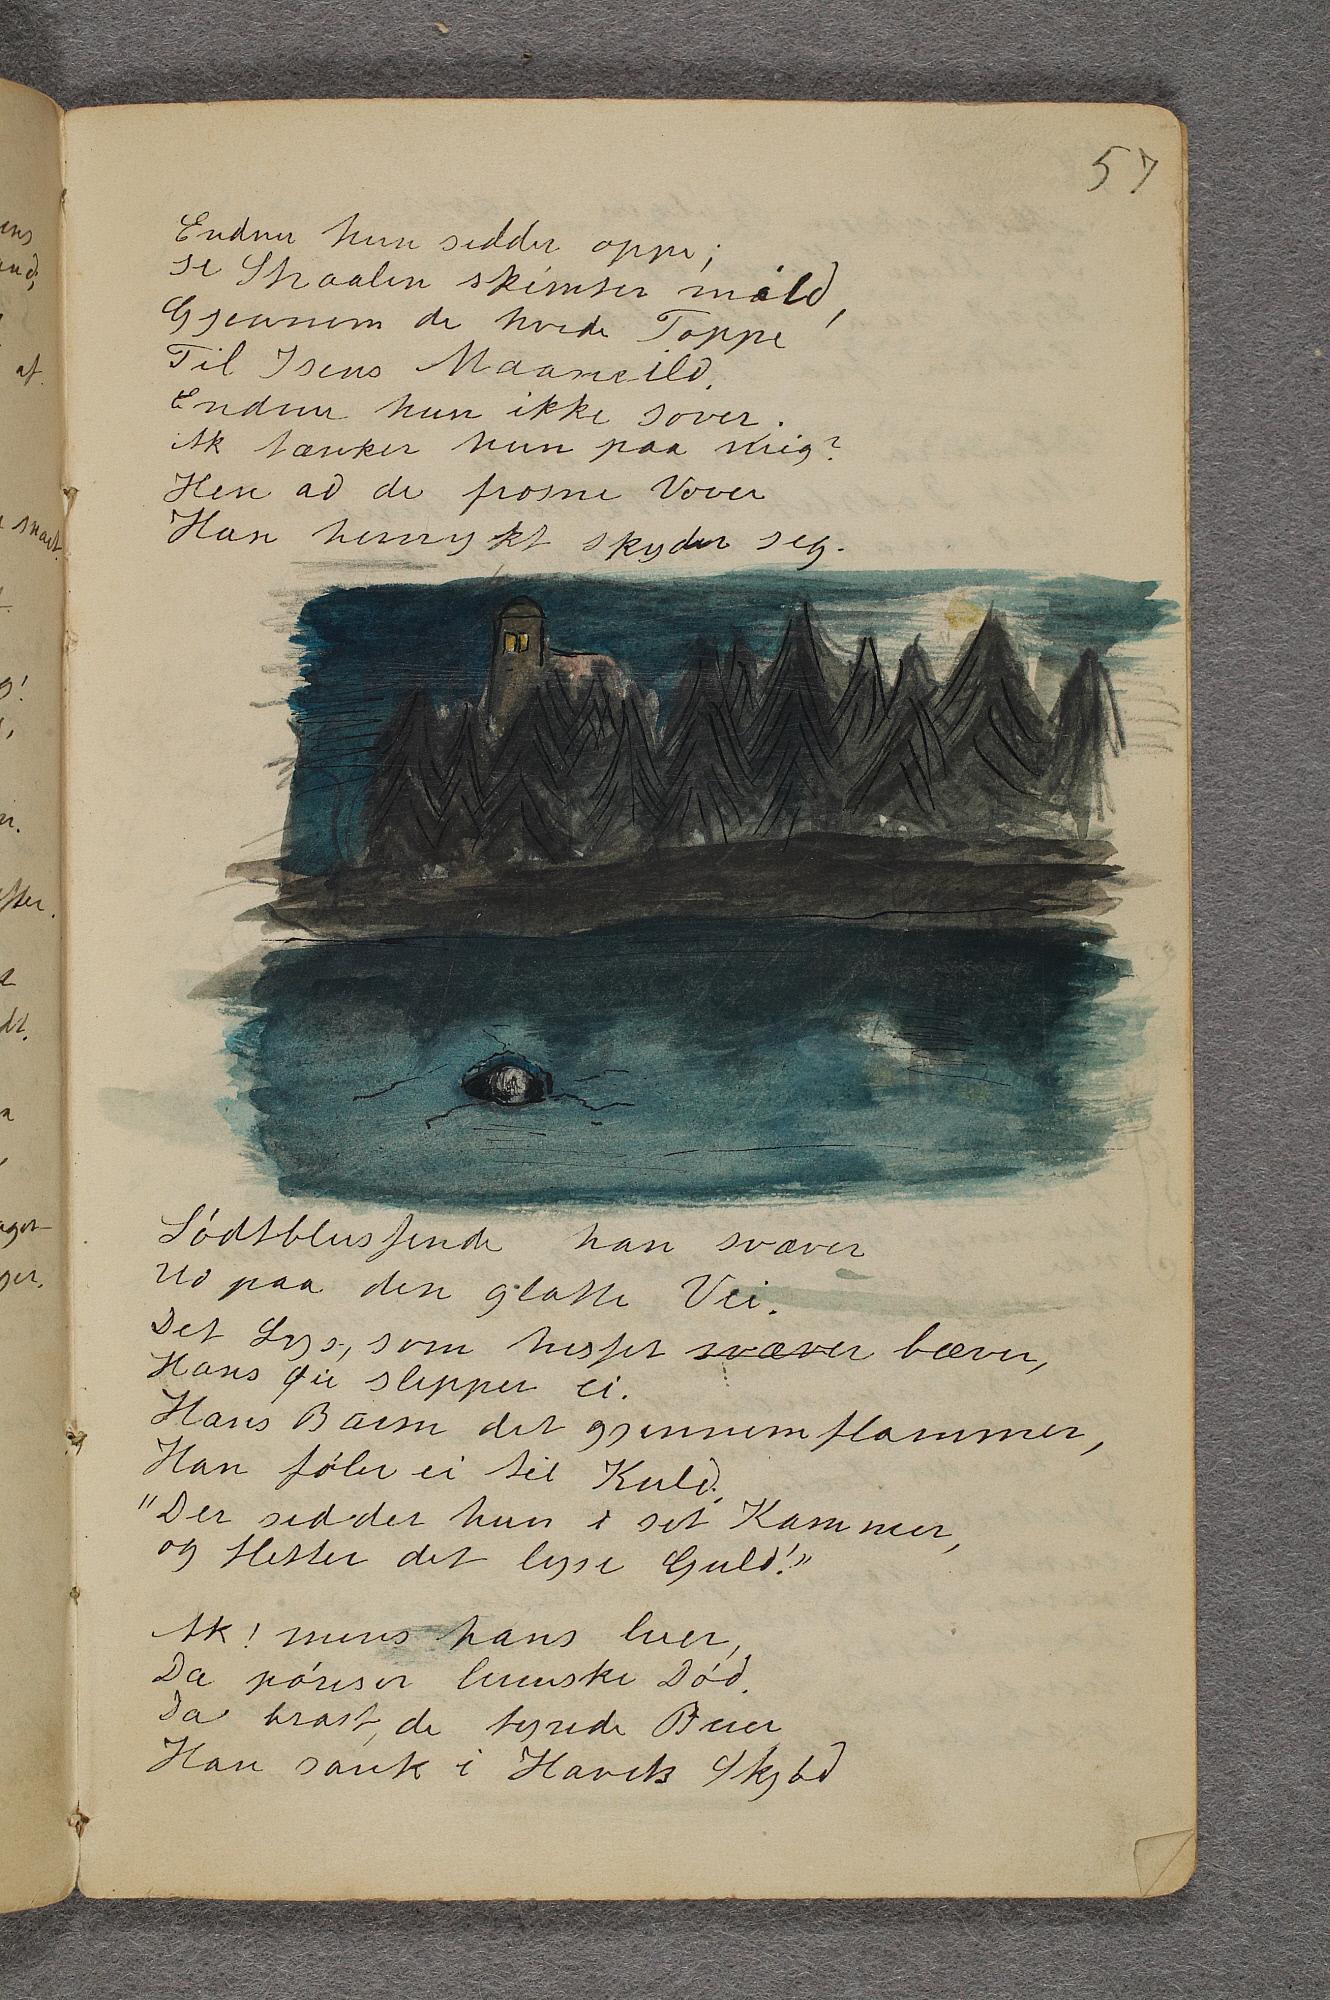 57
Endnu hun sidder oppe;
se Straalen skimter mild,
Gjennem de hvide Toppe
Til Isens Maaneild.
Endnu hun ikke sover.
Ak tænker hun paa mig?
Hen ad de frosne Vover
Han henrykt skyder sig.
Sødtblussende han svæver
Ud paa den glatte Vei.
Det Lys, som hisset svæver bæver,
Hans Øie slipper ei.
Hans Barm det gjennemflammer,
Han føler ei til Kuld.
"Der sidder hun i sit Kammer,
og fletter det lyse Guld!"
Ak! mens hans luer,
Da pønser lumske Død.
Da brast, de
Han sank i Havets Skjød